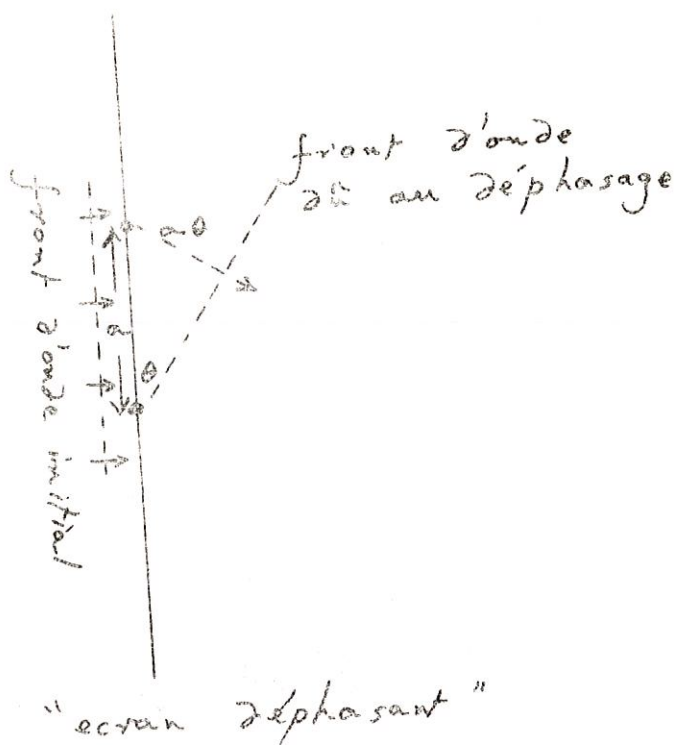 front d'onde
dû au déphasage
aθ
a
θ
front d'onde initial
"ecran déphasant"